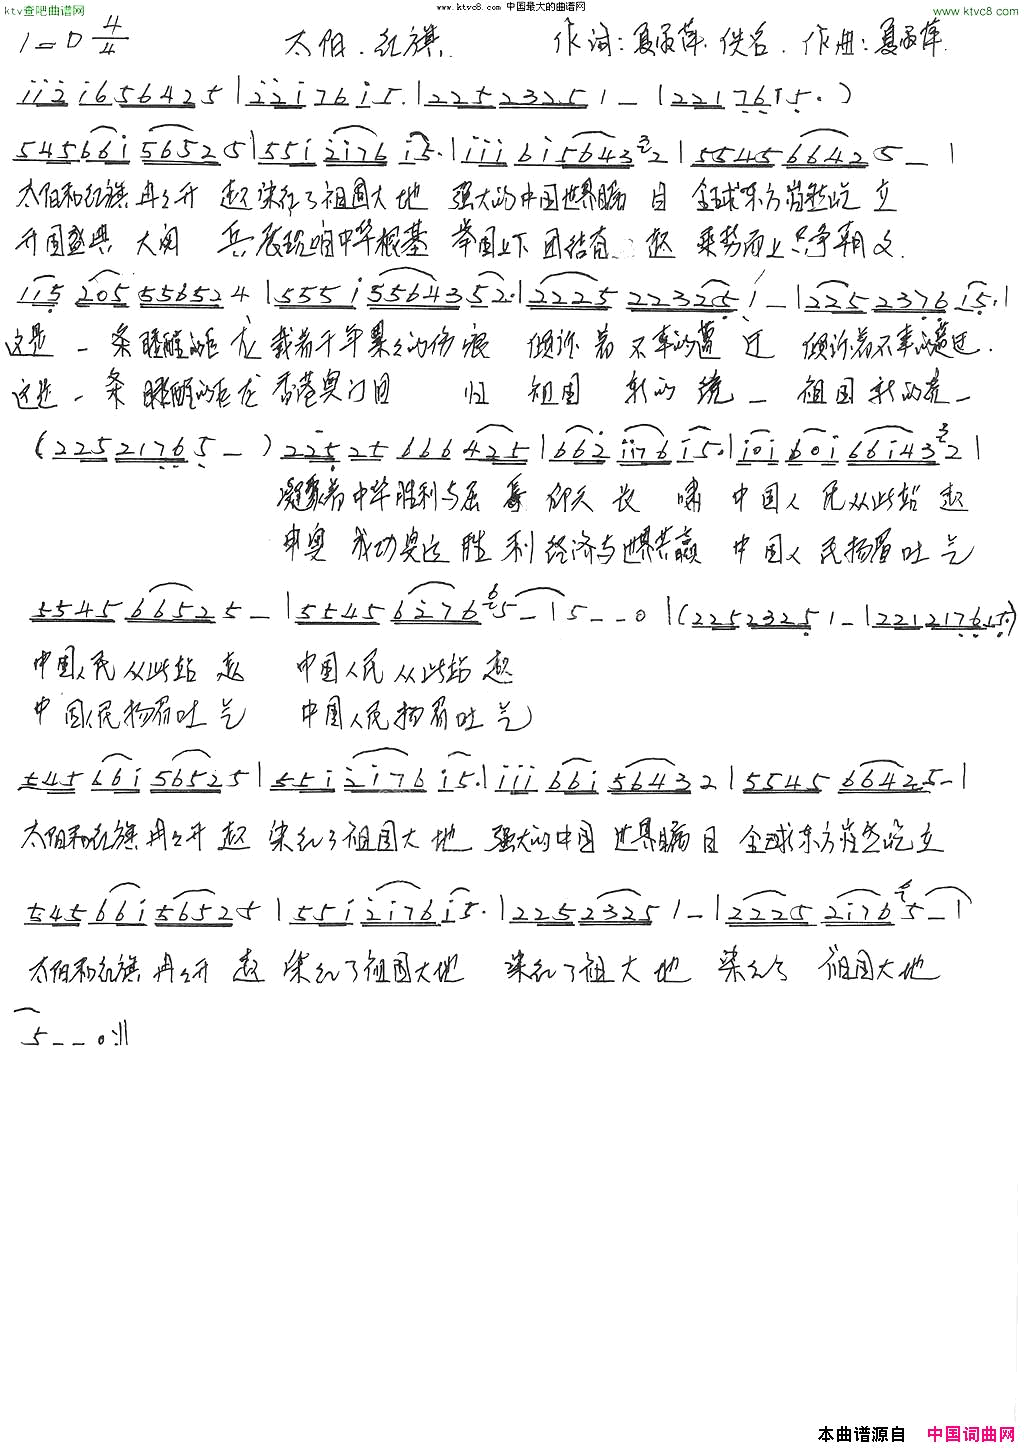 ktv查吧曲谱网
www.ktvc8.com 中国最大的曲谱网
www.ktvc8.com
1=D 4/4 太阳.红旗. 作词:夏 萍.佚名. 作曲:夏 萍.
i i 2 i 6 5 6 4 2 5 | 2 2 i 7 6 i 5. | 2 2 5 2 3 2 5 1 — | 2 2 1 7 6 1 5. )
5 4 5 6 6 i 5 6 5 2 5 | 5 5 i 2 i 7 6 i 5. | i i i 6 i 5 6 4 3 2 | 5 5 4 5 6 6 4 2 5 — |
太阳和红旗冉冉升 起 染红了祖国大地 强大的中国世界瞩 目 全球东方岿然屹 立
开国盛典 大阅 兵展现咱中华根基 举国上下 团结奋 起 乘势而上只争朝夕.
1 1 5 2 0 5 5 5 6 5 2 4 | 5 5 5 i 5 5 6 4 3 5 2. | 2 2 2 5 2 2 3 2 5 1 — | 2 2 5 2 3 7 6 1 5. |
这是 一条醒醒的巨龙 载着千年累累的伤痕 倾诉着 不幸的遭 过 倾诉着不幸的遭过.
这是 一 条 醒醒的巨龙 香港奥门回 归 祖国 新的 统 一 祖国 新的统一
( 2 2 5 2 1 7 6 5 — ) 2 2 5 2 5 6 6 6 4 2 5 | 6 6 2 i i 7 6 i 5. | i 0 i 6 0 i 6 6 i 4 3 2 |
凝聚着中华胜利与屈 辱 仰天 长 啸 中国人 民从此站 起
申奥 成功奥运 胜 利 经济与世界共赢 中国人 民扬眉吐 气
5 5 4 5 6 6 5 2 5 — | 5 5 4 5 6 2 7 6 5 — | 5 — — 0 | ( 2 2 5 2 3 2 5 1 — | 2 2 1 2 1 7 6 1 5. )
中国人民从此站 起 中国人民从此站 起
中国人民扬眉吐 气 中国人民扬眉吐 气
5 4 5 6 6 i 5 6 5 2 5 | 5 5 i 2 i 7 6 i 5. | i i i 6 6 i 5 6 4 3 2 | 5 5 4 5 6 6 4 2 5 — |
太阳和红旗冉冉升 起 染红了祖国大 地 强大的中国 世界瞩 目 全球东方岿然屹立
5 4 5 6 6 i 5 6 5 2 5 | 5 5 i 2 i 7 6 i 5. | 2 2 5 2 3 2 5 1 — | 2 2 2 5 2 i 7 6 5 — |
太阳和红旗 冉冉升 起 染红了祖国大地 染红了祖 大 地 染红了 祖国大地
5 — — 0 :||
本曲谱源自 中国词曲网